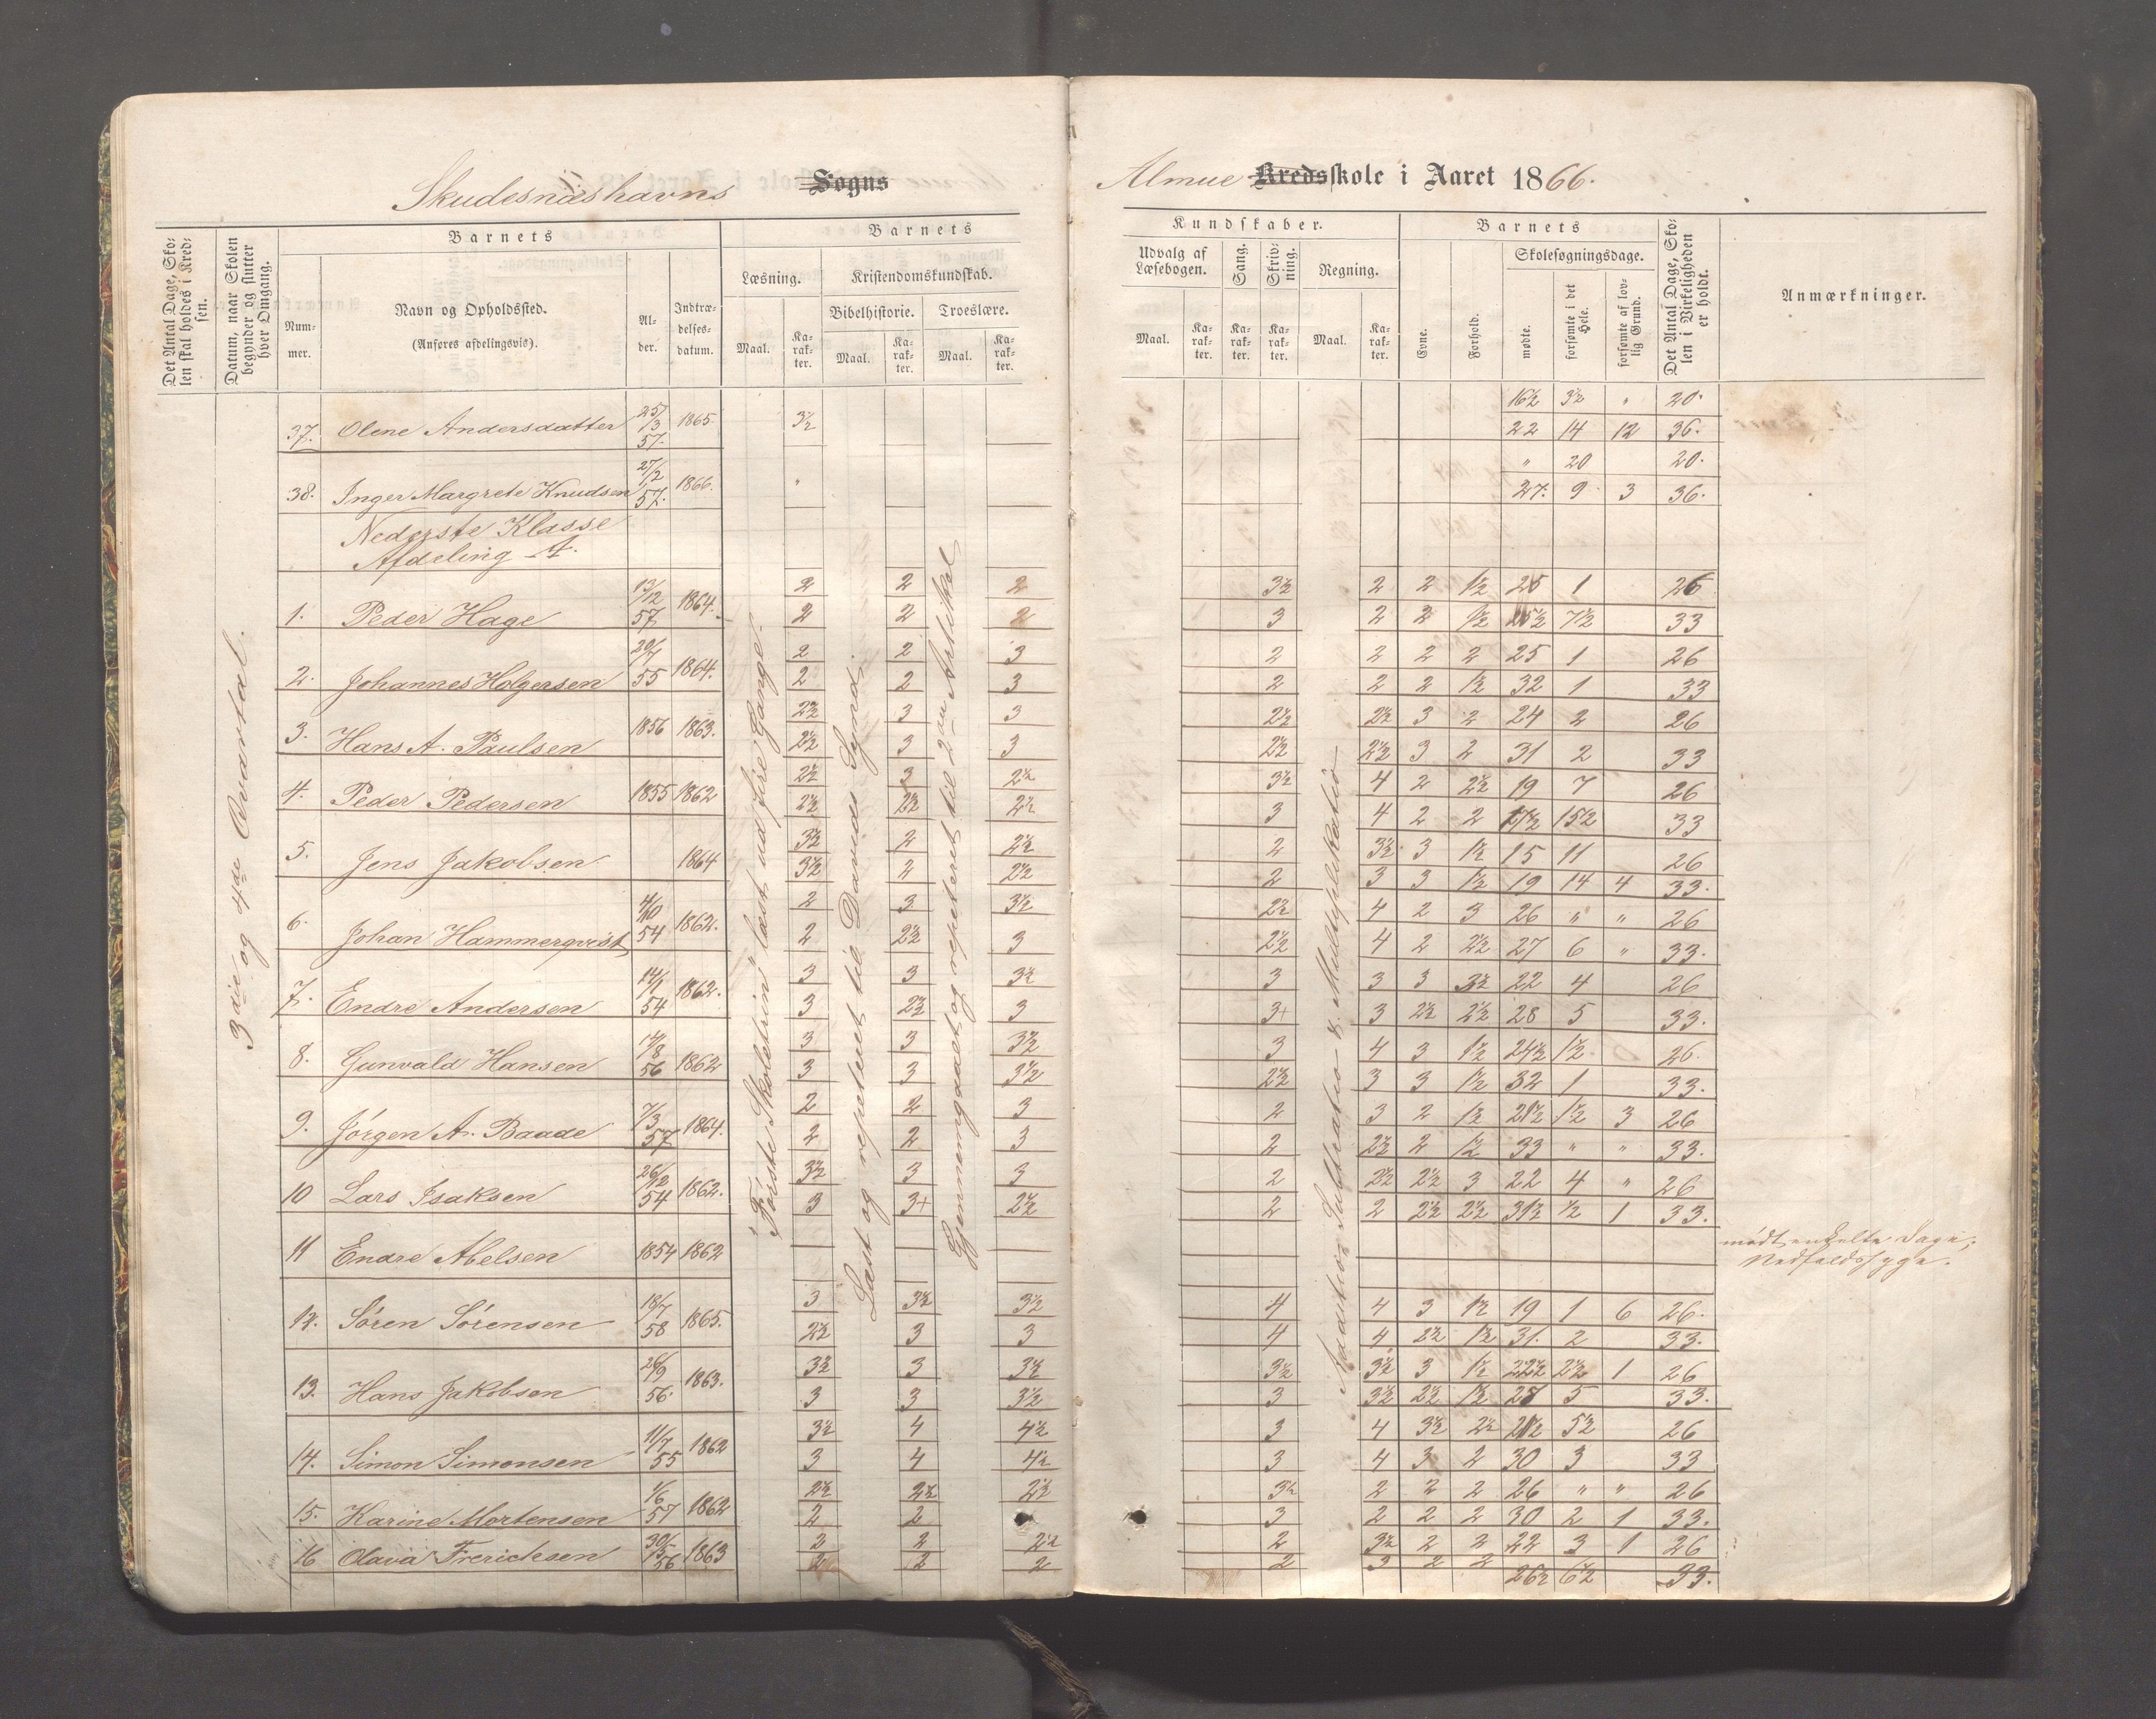 Skudesnæshavns Sogns
Almue Kredsskole i Aaret 1866.
Det Antal Dage, Skolen skal holdes i Kredsen.
Datum, naar Skolen begynder og slutter hver Omgang.
Barnets
Nummer.
Navn og Opholdssted.
(Anføres afdelingsvis).
Alder.
Indtrædelsesdatum.
Barnets
Læsning.
Maal.
Karakter.
Kristendomskundskab.
Bibelhistorie.
Maal.
Karakter.
Troeslære.
Maal.
Karakter.
Kundskaber.
Udvalg af Læsebogen.
Maal.
Karakter.
Sang.
Karakter.
Skrivning.
Karakter.
Regning.
Maal.
Karakter.
Barnets
Evne.
Forhold.
Skolesøgningsdage.
mødte.
forsømte i det Hele.
forsømte af lovlig Grund.
Det Antal Dage, Skolen i Virkeligheden er holdt.
Anmærkninger.
3die og 4de Qvartal.
"Første Skoletrin" læst ud fire Gange.
Læst og repeteret til Davids Synd.
Gjennemgaaet og repeteret til 2den Artikkel
Addition, Subtration & Multiplikation
16½ 3½ " 20.
37. Olene Andersdatter 25/3 57. 1865. 3½ 22 14 12 36.
" 20 20.
38. Inger Margrete Knudsen 27/2 57. 1866. " 27. 9 3 36.
Nederste Klasse
Afdeling A.
2 2 2 3½ 2 2 1½ 25 1 26
1. Peder Hage 13/12 57 1864. 2 2 2 3 2 2 1½ 25½ 7½ 33
2 2 3 2 2 2 2 25 1 26
2. Johannes Holgersen 20/7 55 1864. 2 2 3 2 2 2 1½ 32 1 33
2½ 3 3 2½ 2½ 3 2 24 2 26
3. Hans A. Paulsen 1856 1863. 2½ 3 3 2½ 2½ 3 2 31 2 33
2½ 3 2½ 3½ 4 2 2½ 19 7 26
4. Peder Pedersen 1855 1862 2½ 2½ 2½ 3 4 2 2 17½ 15½ 33
3½ 2 2½ 2 3½ 3 1½ 15 11 26
5. Jens Jakobsen 1864 3½ 2 2½ 2 3 3 1½ 19 14 4 33.
2 3 3½ 2½ 4 2 3 26 " " 26
6. Johan Hammerqvist 4/10 54 1862. 2 2½ 3 2½ 4 2 2½ 27 6 " 33.
3 3 3½ 3 3 3 3½ 22 4 26
7. Endre Andersen 14/1 54 1862. 3 2½ 3 3+ 3 2½ 2½ 28 5 33.
3 3 3½ 3 4 3 1½ 24½ 1½ 26.
8. Gunvald Hansen 14/8 56 1862 3 3 3½ 2½ 3 3 1½ 32 1 33.
2 2 3 2 3 2 1½ 21½ 1½ 3 26
9. Jørgen A. Baade 7/3 57 1864. 2 2 3 2 2½ 2 1½ 33 " " 33.
3½ 3 3 2 2½ 2½ 3 22 4 " 26
10 Lars Isaksen 26/12 54 1862. 3 3+ 2½ 2 2 2½ 2½ 31½ ½ 1 33.
11 Endre Abelsen 1854 1862 mødt enkelte Dage;
Nedfaldssyge.
3 3½ 3½ 4 4 3 1½ 19 1 6 26.
12. Søren Sørensen 18/7 58 1865. 2½ 3 3 4 4 2½ 1½ 31. 2 33.
3½ 3 3½ 3½ 3½ 3 1½ 22½ 2½ 1 26
13. Hans Jakobsen 26/9 56. 1863. 3 3 3½ 3 3½ 2½ 1½ 28 5 33.
3½ 4 4½ 3 4 3½ 2½ 21½ 5½ 26
14. Simon Simonsen 11/7 55 1862 3 4 4½ 3 4 3 2 30 3 33
2½ 2½ 2½ 3½ 2 2 2 26 " " 26
15. Karine Mortensen 1/6 57 1862 2 2 3 2 2 2 30 2 1 33.
2 2 2½ 2 3½ 2 2 22 3 1 26
16 Olava Frerichsen 56 1863 2 2 2 2 3 2 2 26½ 6½ 33.